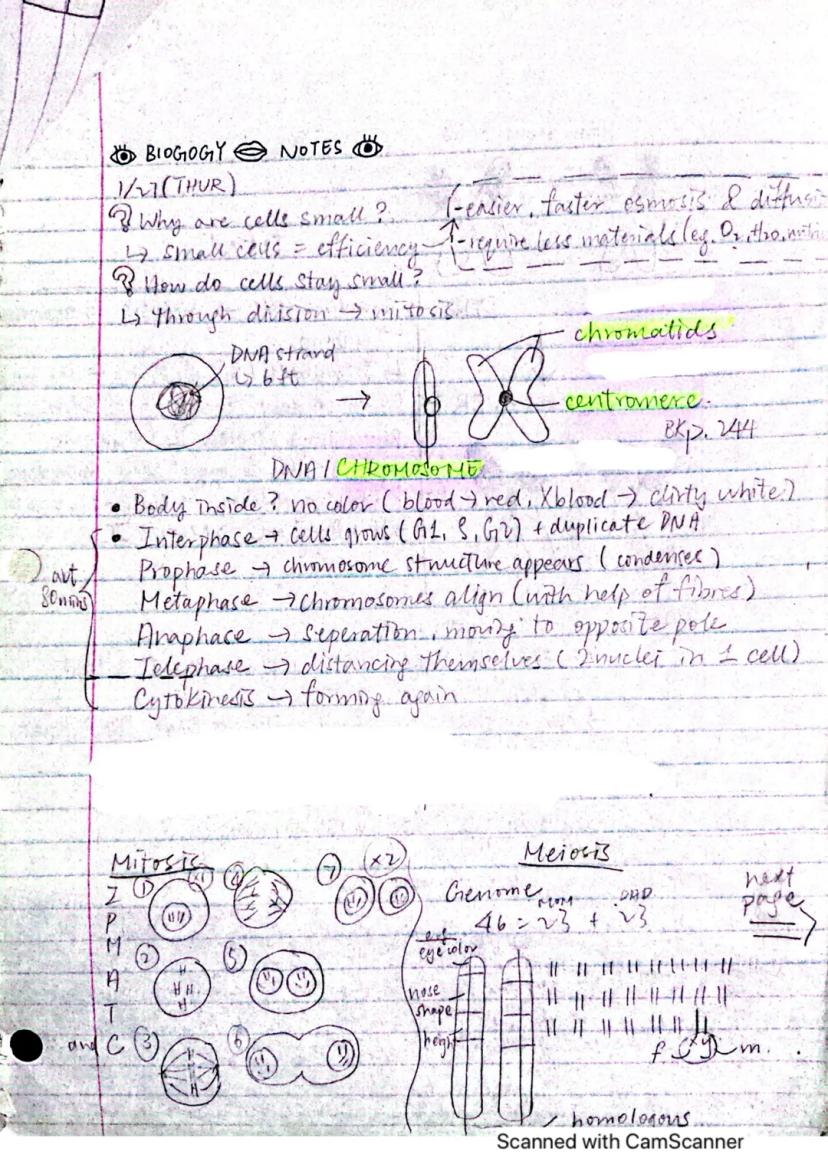 BIOGOGY NOTES
1/27 (THUR)
Why are cells small?
(-easier, faster osmosis & diffusi
↳ small cells = efficiency
-require less materials (eg. O2, H2O,
How do cells stay small?
↳ through division → mitosis
DNA strand
↳ 6 ft
→
chromatids
centromere.
BK p. 244
DNA / CHROMOSOME
• Body inside? no color (blood → red, Xblood → dirty white)
• Interphase → cells grows (G1, S, G2) + duplicate DNA
Prophase → chromosome structure appears (condenses)
abt 80 mins
Metaphase → chromosomes align (with help of fibres)
Anaphase → seperation, moving to opposite pole
Telephase → distancing themselves (2 nuclei in 1 cell)
Cytokinesis → forming again
Mitosis
I P M A T and C
① (x1) ④ ⑦ (x2)
② ⑤
③ ⑥
Meiosis
Genome
MOM DAD
46 = 23 + 23
next page
eye color
nose shape
height
f xy m.
homologous
Scanned with CamScanner